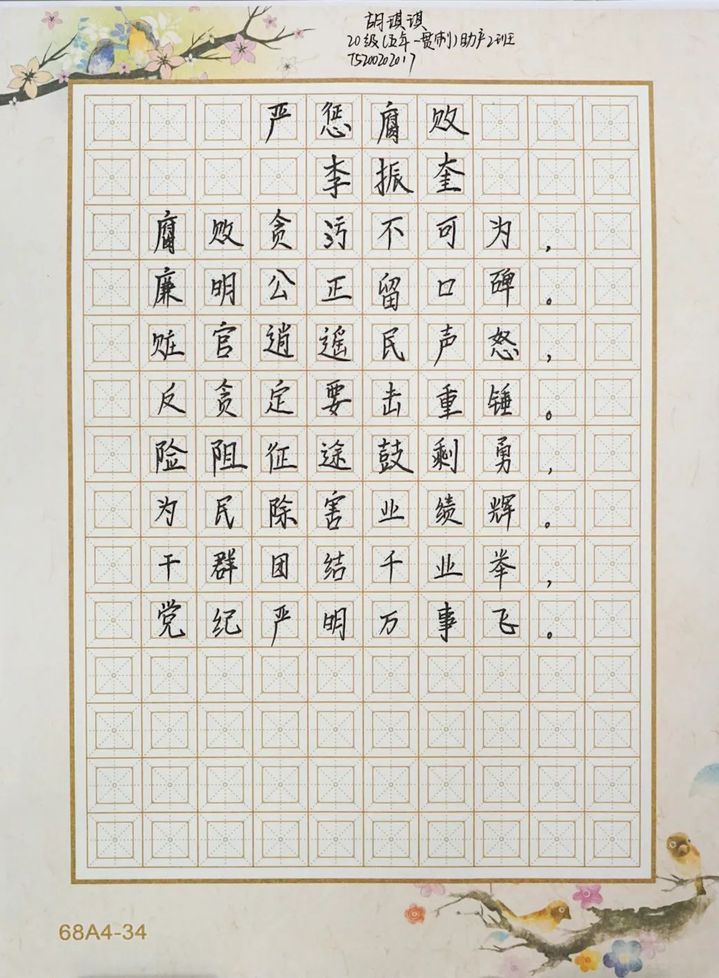 胡琪琪
20级(五年一贯制)助产2班
T520202017
严惩腐败
李振奎
腐败贪污不可为，
廉明公正留口碑。
赃官逍遥民声怒，
反贪定要击重锤。
险阻征途鼓剩勇，
为民除害业绩辉。
干群团结千业举，
党纪严明万事飞。
68A4-34